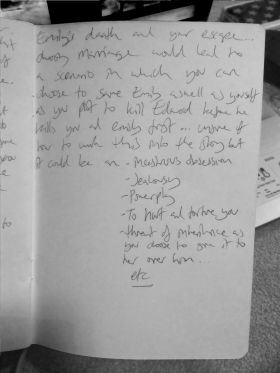 Emily's death and your escape...
choosing marriage would lead to
a scenario in which you can
choose to save Emily aswell as yourself
as you plot to kill Edward before he
kills you and emily first... unsure of
how to work this into the story but
it could be an - incestuous obsession
- Jealousy
- Powerplay
- To hurt and torture you
- threat of inheritance as
you choose to give it to
her over him...
etc